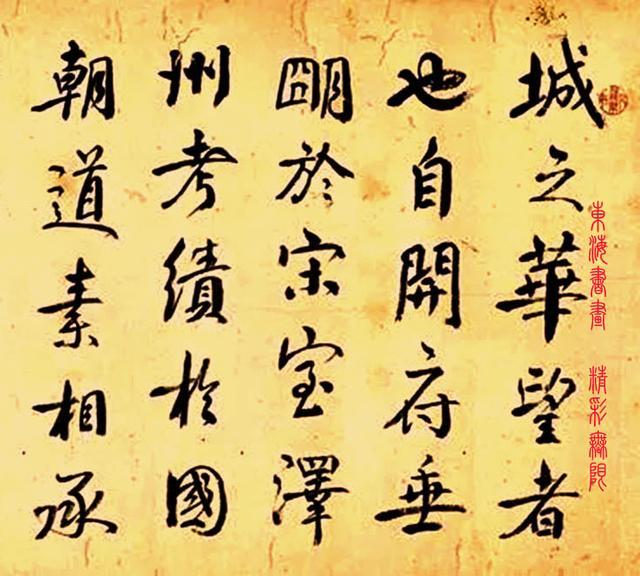 城之華望者
也自開府垂
朙於宋室澤
州考績於國
朝道素相承
東海書畫 精彩無限